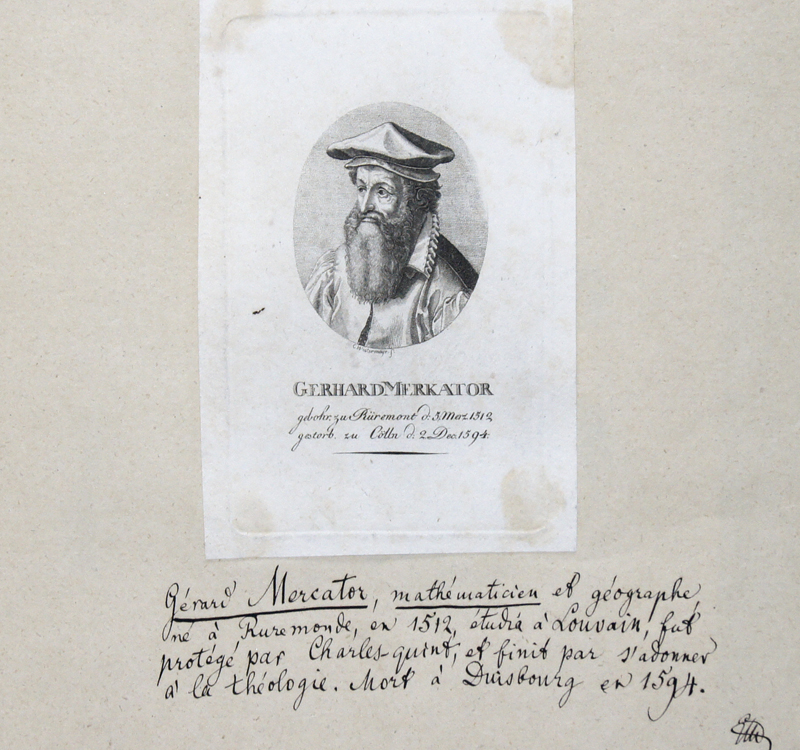 GERHARD MERKATOR
gebohr. zu Rüremont d. 5. Merz 1512
gestorb. zu Cölln d. 2. Dec. 1594.
Gérard Mercator, mathématicien et géographe,
né à Ruremonde, en 1512, étudia à Louvain, fut
protégé par Charles-quint, et finit par s'adonner
à la théologie. Mort à Duisbourg en 1594.